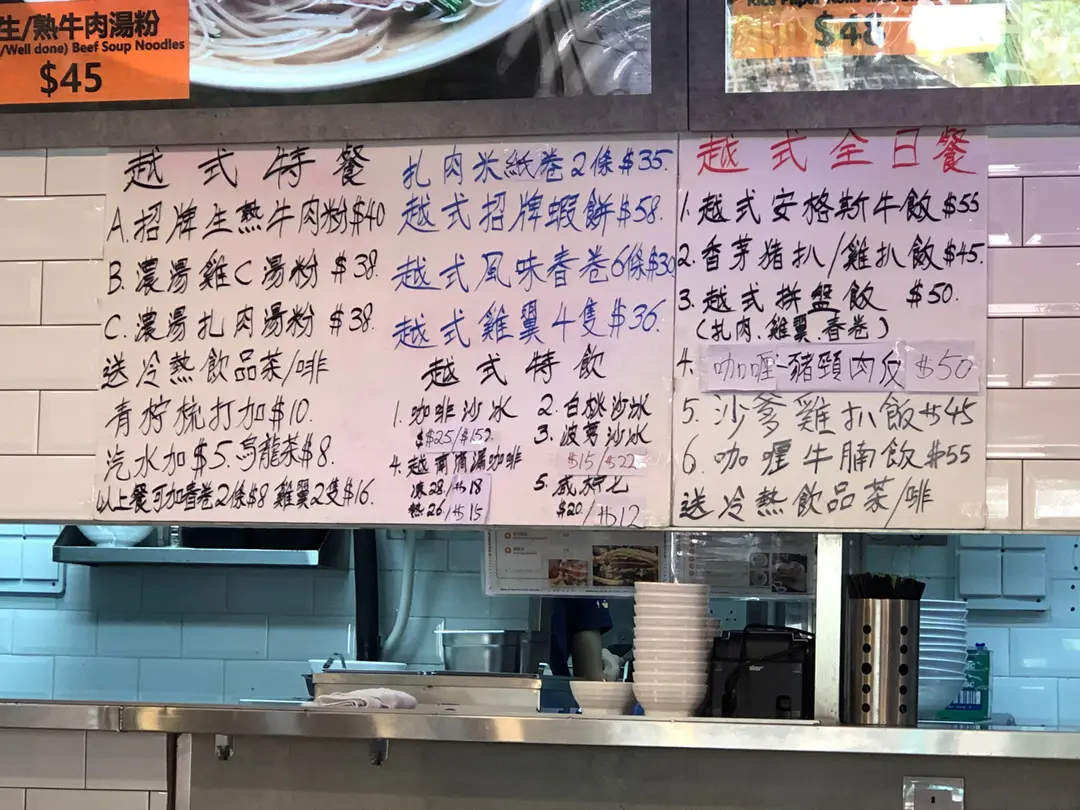 生/熟牛肉湯粉
/Well done) Beef Soup Noodles
$45
$48
越式特餐
A.招牌生熟牛肉粉$40
B.濃湯雞C湯粉 $38.
C.濃湯扎肉湯粉 $38.
送冷熱飲品茶/啡
青柠梳打加$10.
汽水加$5.烏龍茶$8.
以上餐可加春卷2條$8 雞翼2隻$16.
扎肉米紙卷2條$35.
越式招牌蝦餅$58.
越式風味春卷6條$30
越式雞翼4隻$36.
越式特飲
1.咖啡沙冰
$25/$15
2.白桃沙冰
3.菠萝沙冰
$15/$22
4.越南滴漏咖啡
凍28./$18
熱26/$15
5.咸柠七
$20./$12
越式全日餐
1.越式安格斯牛飯$55
2.香茅猪扒/雞扒飯$45.
3.越式拼盤飯 $50.
(扎肉.雞翼.春卷)
4.咖喱豬頸肉反 $50
5.沙爹雞扒飯$45
6.咖喱牛腩飯$55
送冷熱飲品茶/啡